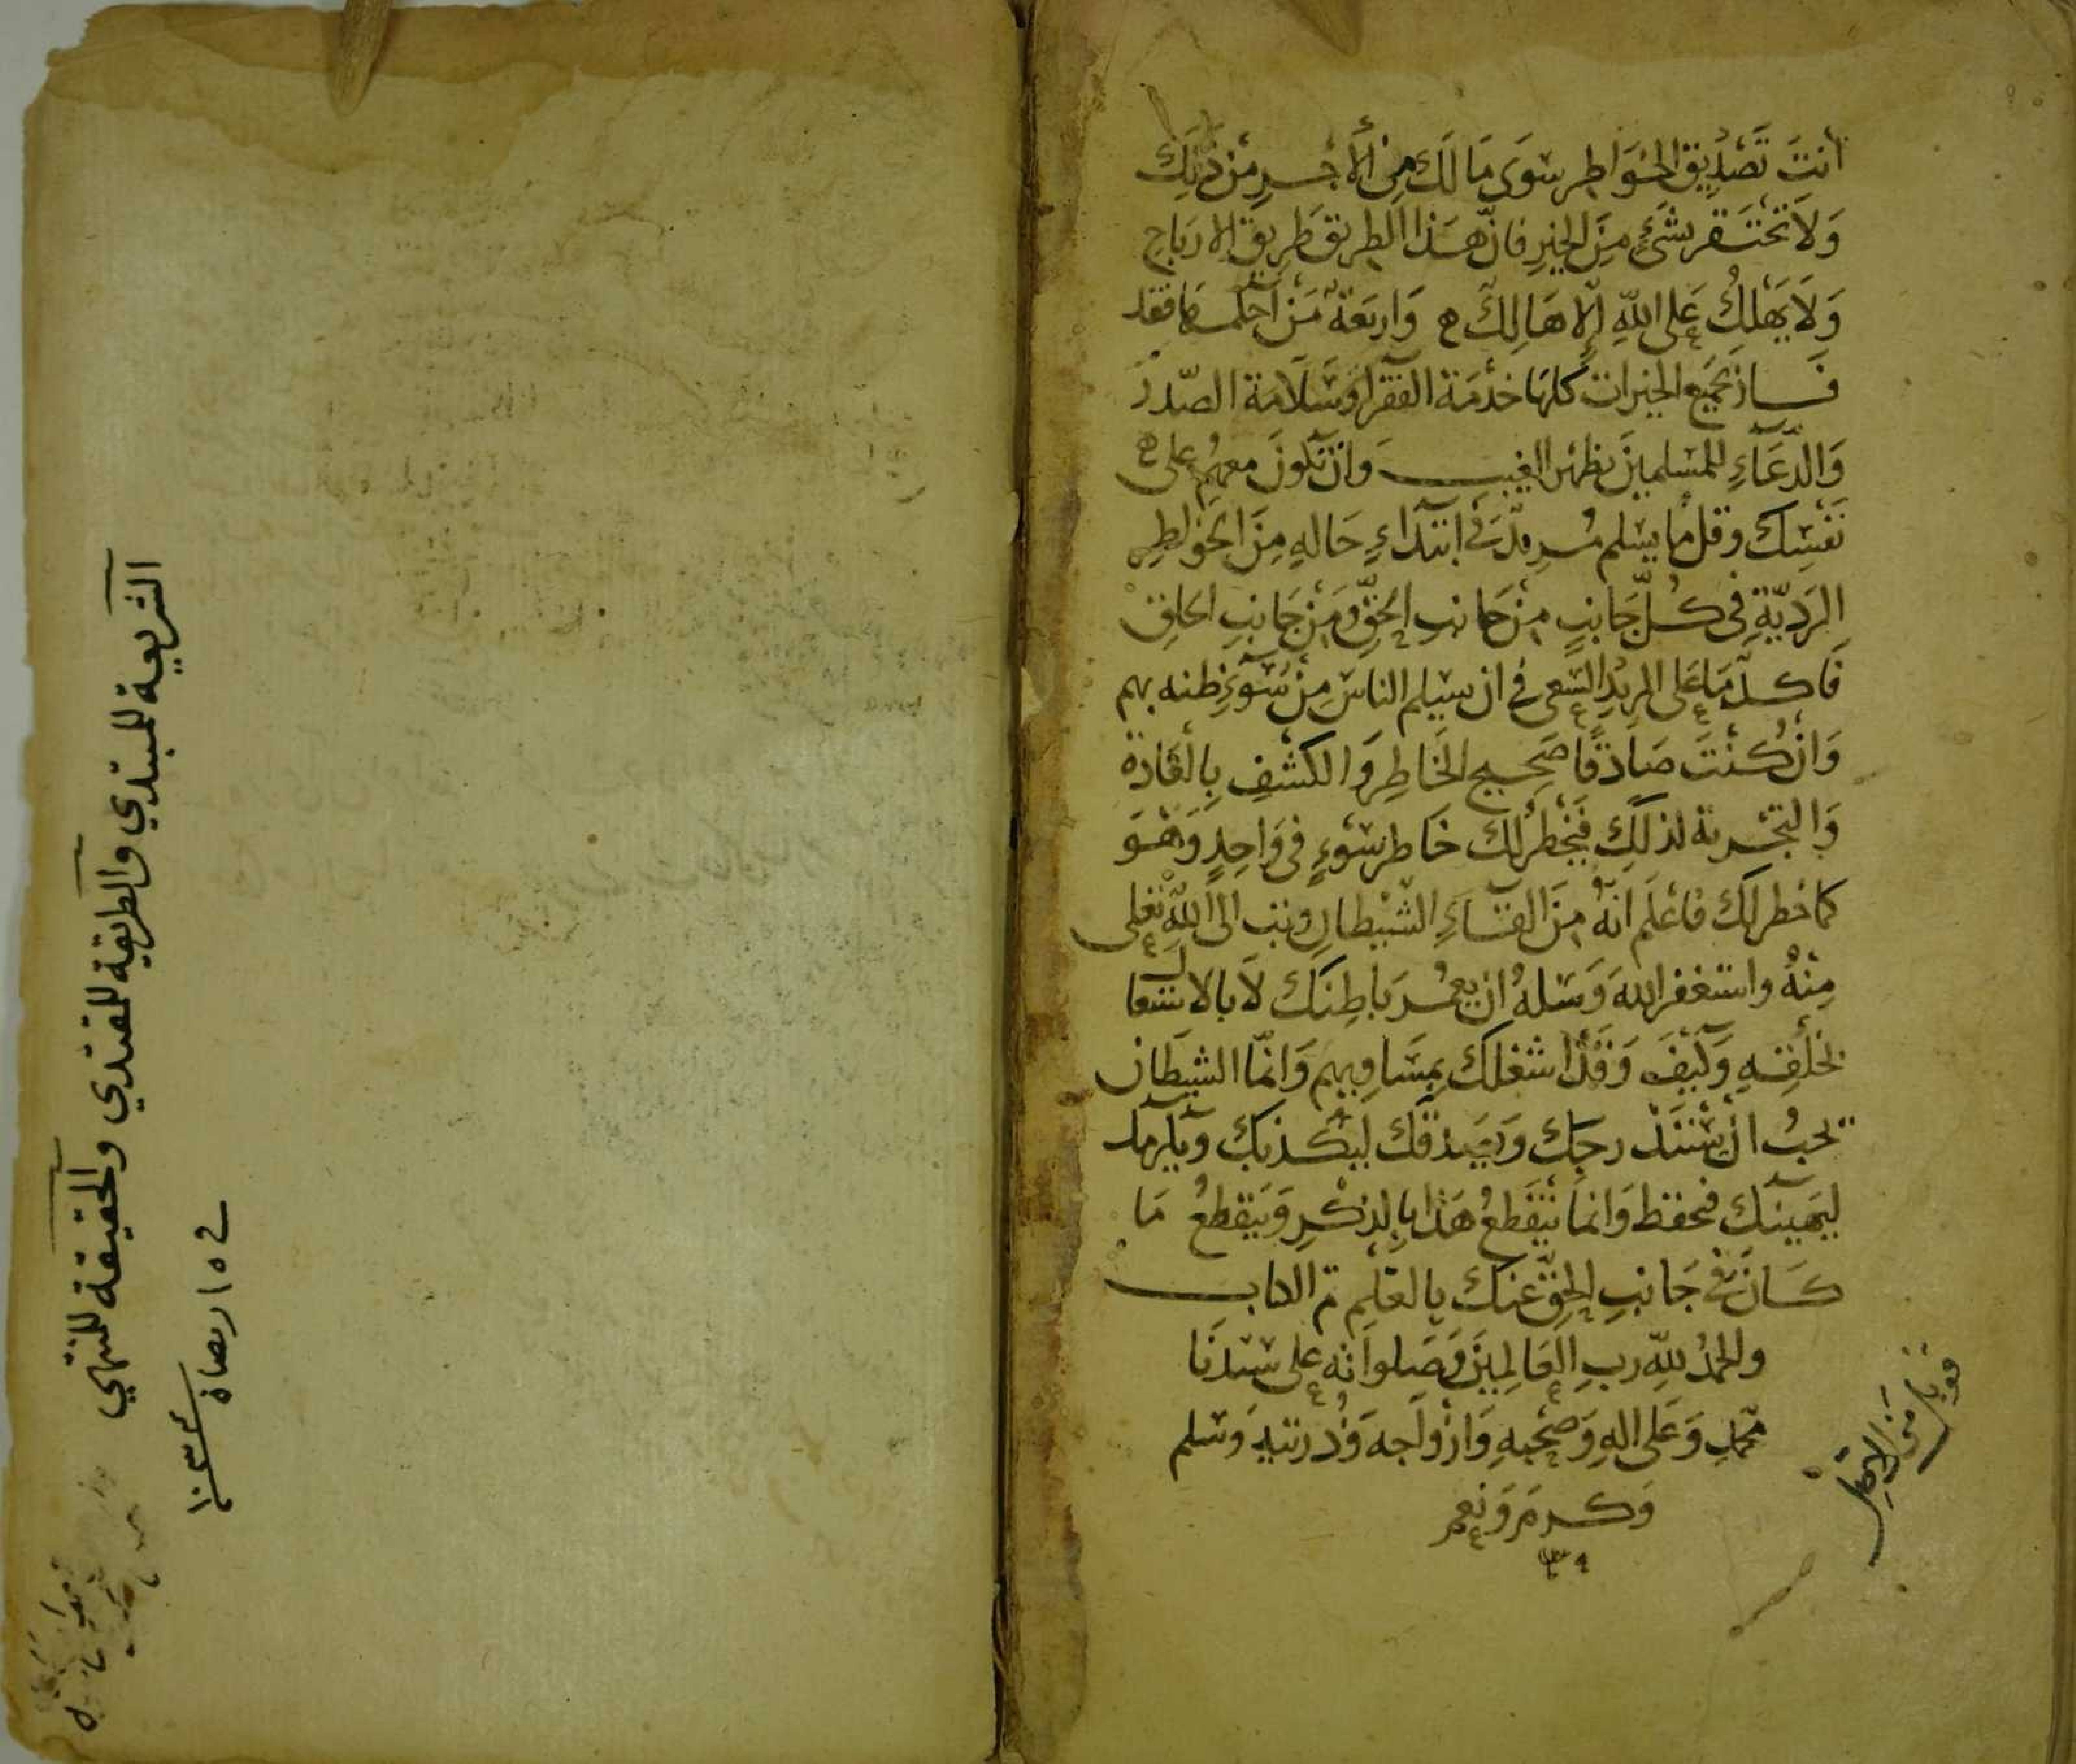 أنتَ تَصْدِيق الخَوَاطِر سوَى مَا لَكَ مِنَ الأَجْرِ مِنْ دينك
وَلَا تَحْتَقر شئ مِنَ الخيرِ فانّ هَذا الطريق طَرِيق الارباح
وَلَا يَهلكُ عَلى اللّهِ إلّا هَالِكٌ ه وَاربَعَةٌ مَن أحكمها فقد
فَاز بجميع الخيرات كلها خدمَة الفقرا وسَلَامَة الصّدر
وَالدّعَاءِ للمسلمينَ بظهر الغيب وَان تكونَ معهم على
نَفسِك وقل ما يسلم مُريد فى ابتدَاءِ حَالهِ مِنَ الخواطِرِ
الرَديّةِ فى كُلّ جَانبٍ مِنْ جانب الحَقِّ وَمِنْ جَانبِ الخلق
فَاكد مَا عَلى المريدِ السّعى فى ان يسلم الناس مِنْ سُوءِ ظنه بهم
وَانْ كنْتَ صَادقًا صَحِيح الخَاطِرِ وَالكشْفِ بِالعَادة
وَالتجْربة لذلكَ فَيَخْطر لك خَاطر سوءٍ فى وَاحِدٍ وَهْوَ
كما خطر لَك فاعْلَم انّهُ مِنَ القَاءِ الشّيْطان وتب الى اللّهِ تعلى
مِنْهُ واستغفر الله وَسَلهُ ان يعمُر بَاطِنَك لَا بالاشتغال
بخلقِهِ وَكيْفَ وَقَدْ اشغلكَ بمَسَاويهم وَانمّا الشيطَان
يحبُ انْ
ليهينَك فتحفظ وَانما يَنْقَطِعُ هَذا بِالذكْرِ وَيَنقطِعُ مَا
كَانَ فى جَانبِ الحَقِّ عنكَ بالعلم تم الكتاب
والحمدُ للّهِ ربِ العَالمِينَ وَصَلواته على سَيّدنَا
محمّدٍ وَعَلى الهِ وَصَحْبهِ وَازْوَاجه وَذُريّتهِ وَسَلم
وَكرمَ وَنعم
قوبل من الاصل
الشريعة للمبتدي والطريقة للمقتدي والحقيقة للمنتهي